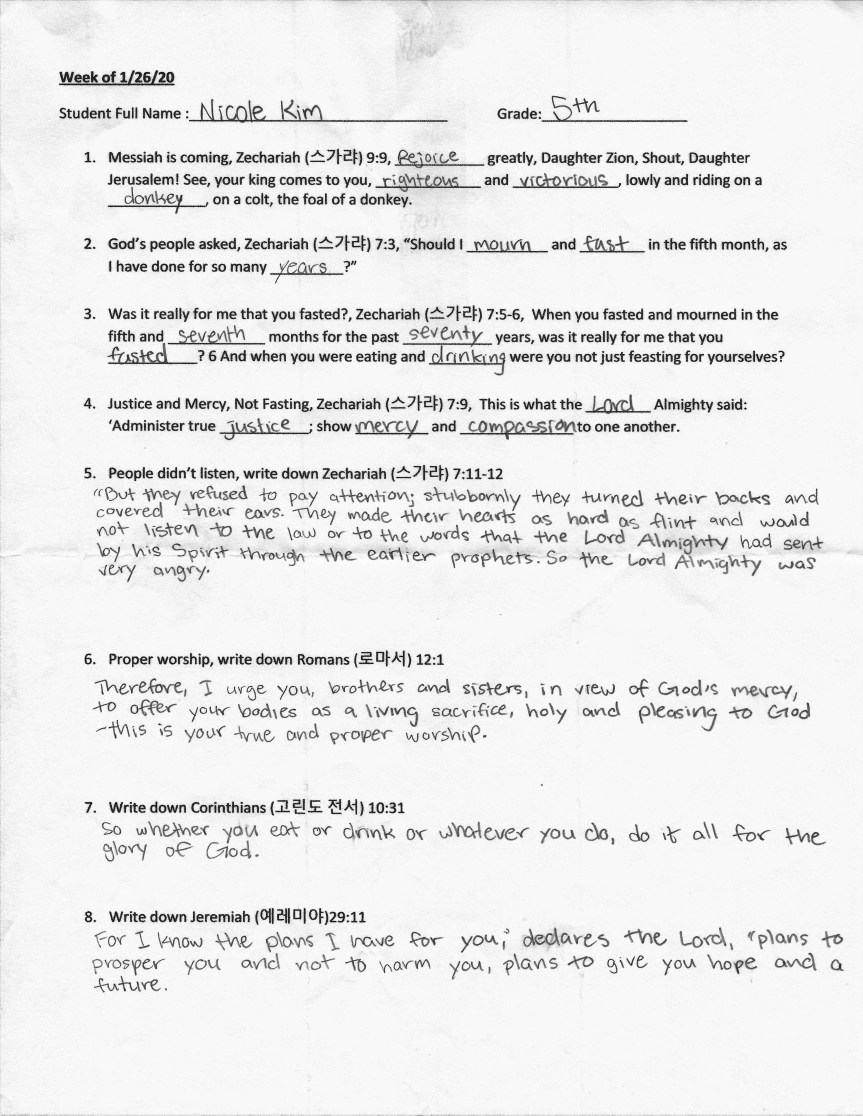 Week of 1/26/20
Student Full Name : Nicole Kim Grade: 5th
1. Messiah is coming, Zechariah (스가랴) 9:9, Rejoice greatly, Daughter Zion, Shout, Daughter
Jerusalem! See, your king comes to you, righteous and victorious, lowly and riding on a
donkey, on a colt, the foal of a donkey.
2. God's people asked, Zechariah (스가랴) 7:3, "Should I mourn and fast in the fifth month, as
I have done for so many years?"
3. Was it really for me that you fasted?, Zechariah (스가랴) 7:5-6, When you fasted and mourned in the
fifth and seventh months for the past seventy years, was it really for me that you
fasted? 6 And when you were eating and drinking were you not just feasting for yourselves?
4. Justice and Mercy, Not Fasting, Zechariah (스가랴) 7:9, This is what the Lord Almighty said:
'Administer true justice; show mercy and compassion to one another.
5. People didn't listen, write down Zechariah (스가랴) 7:11-12
"But they refused to pay attention; stubbornly they turned their backs and
covered their ears. They made their hearts as hard as flint and would
not listen to the law or to the words that the Lord Almighty had sent
by his Spirit through the earlier prophets. So the Lord Almighty was
very angry.
6. Proper worship, write down Romans (로마서) 12:1
Therefore, I urge you, brothers and sisters, in view of God's mercy,
to offer your bodies as a living sacrifice, holy and pleasing to God
-this is your true and proper worship.
7. Write down Corinthians (고린도 전서) 10:31
So whether you eat or drink or whatever you do, do it all for the
glory of God.
8. Write down Jeremiah (예레미야)29:11
For I know the plans I have for you," declares the Lord, "plans to
prosper you and not to harm you, plans to give you hope and a
future.